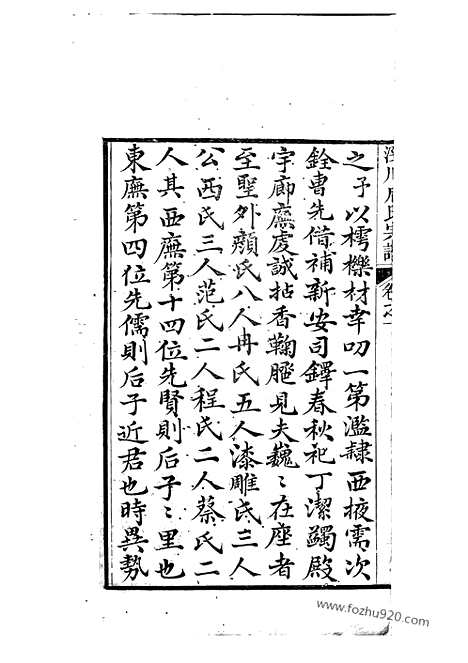 之予以樗櫟材幸叨一第濫隸西掖需次
銓曹先借補新安司鐸春秋祀丁潔蠲殿
宇廊廡虔誠拈香鞠䠆見夫巍〻在座者
至聖外顏氏八人冉氏五人漆雕氏三人
公西氏三人范氏二人程氏二人蔡氏二
人其西廡第十四位先賢則后子〻里也
東廡第四位先儒則后子近君也時異勢
www.fozhu920.com